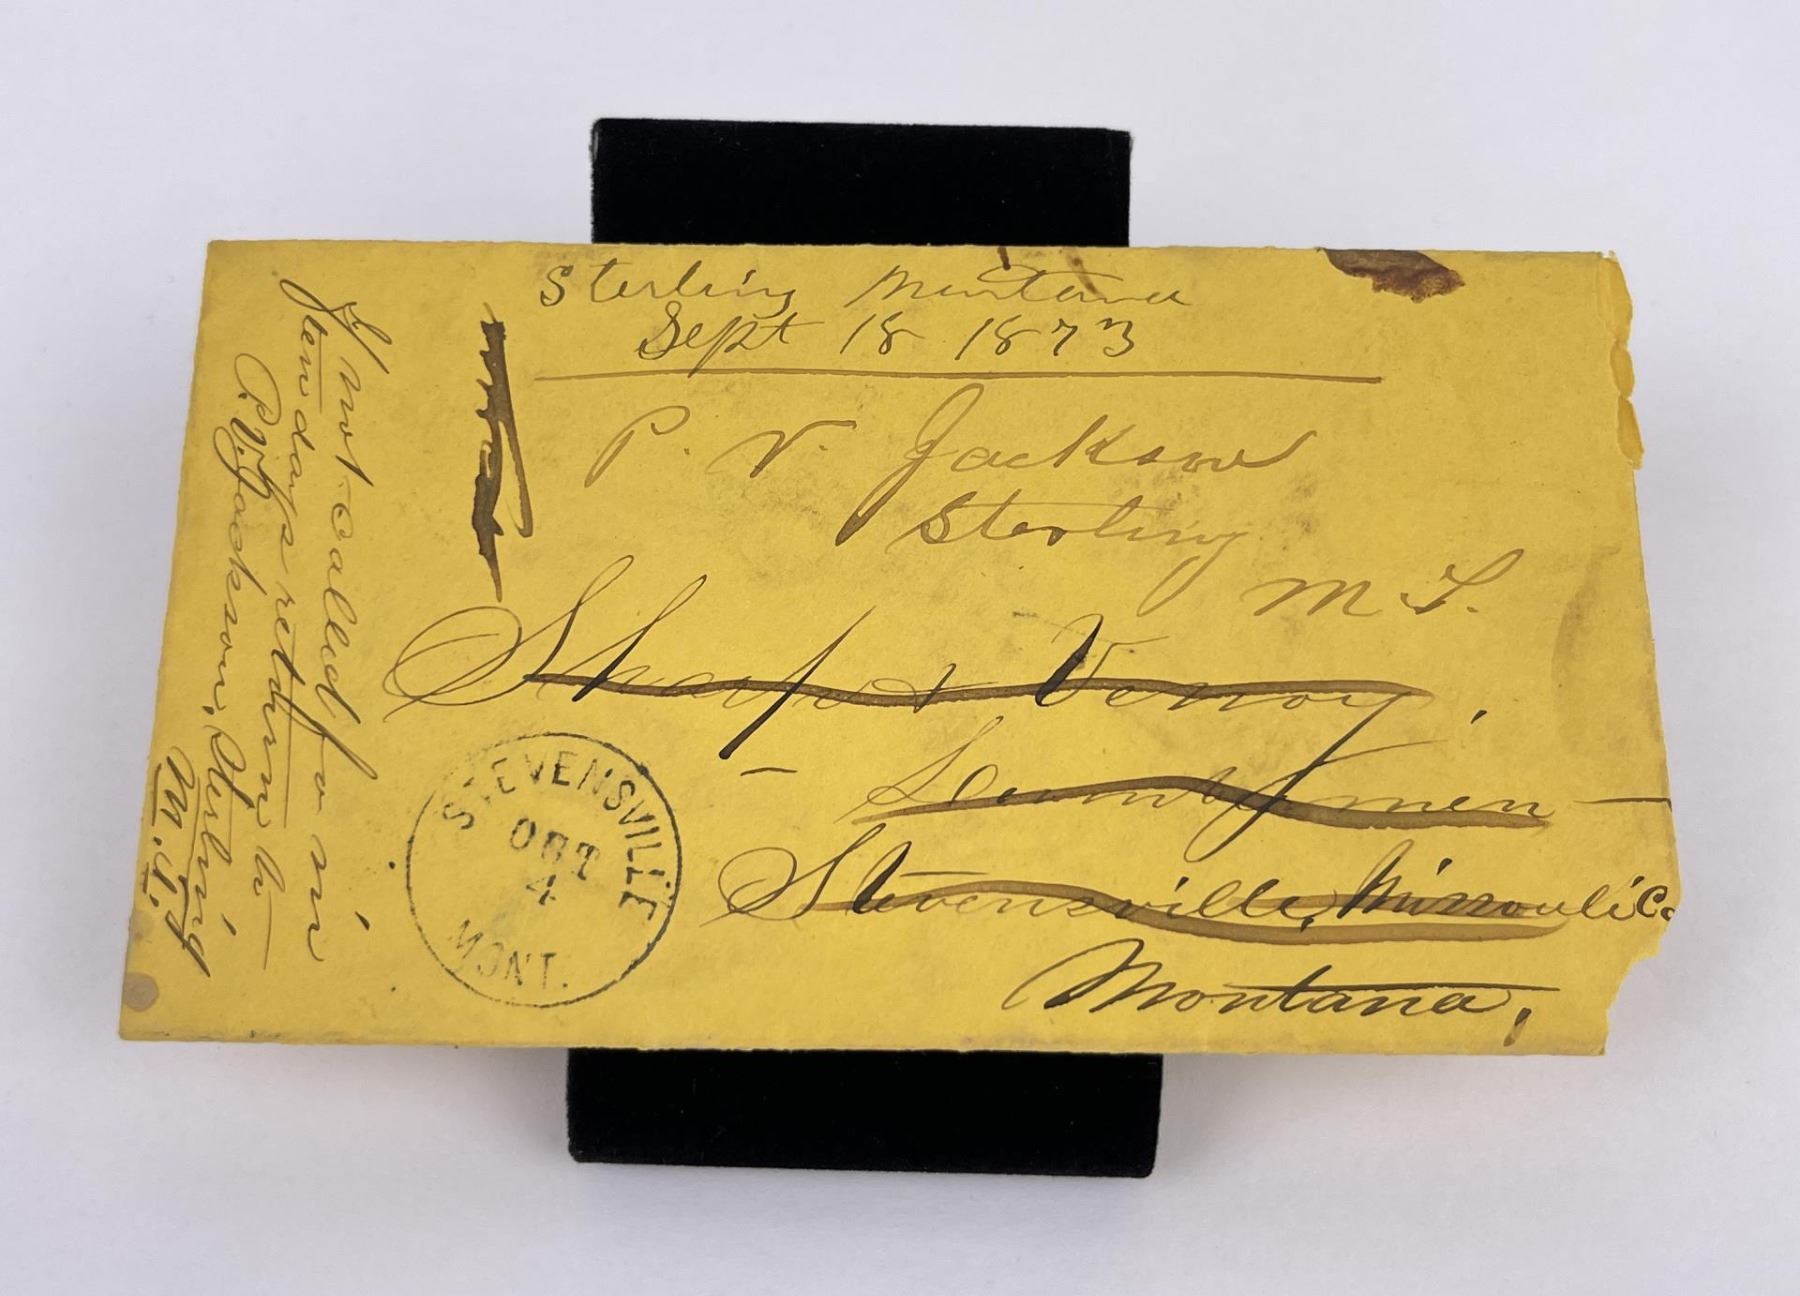 Sterling Montana
Sept 18 1873
P. V. Jackson
Sterling
M T.
Sharp &
Stevensville, Missouli Co
Montana,
STEVENSVILLE
OCT
4
MONT.
If not called for in
ten days return to
P. V. Jackson, Sterling
M. T.